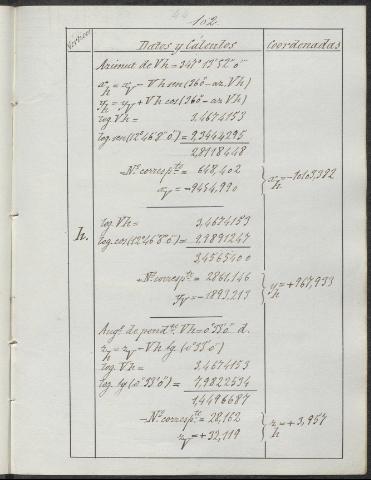 102.
Vértices
Datos y Cálculos
Coordenadas
Azimut de Vh = 347° 13' 52" 0
x_h = x_v - Vh sen (360° - az. Vh)
y_h = y_v + Vh cos (360° - az Vh)
log. Vh = 3,4674153
log. sen (12° 46' 8" 0) = 9,3444295
2,8118448
- N.º corresp.te = 648,402
x_v = -9454,990
x_h = -10103,392
h.
log. Vh = 3,4674153
log. cos (12° 46' 8" 0) = 9,9891247
3,4565400
- N.º corresp.te = 2861,146
y_v = -1893,213
y_h = +967,933
Ang.º de pend.te Vh = 0° 33' 0" d.
z_h = z_v - Vh tg. (0° 33' 0")
log. Vh = 3,4674153
log. tg (0° 33' 0") = 7,9822534
1,4496687
- N.º corresp.te = 28,162
z_v = +32,119
z_h = +3,957